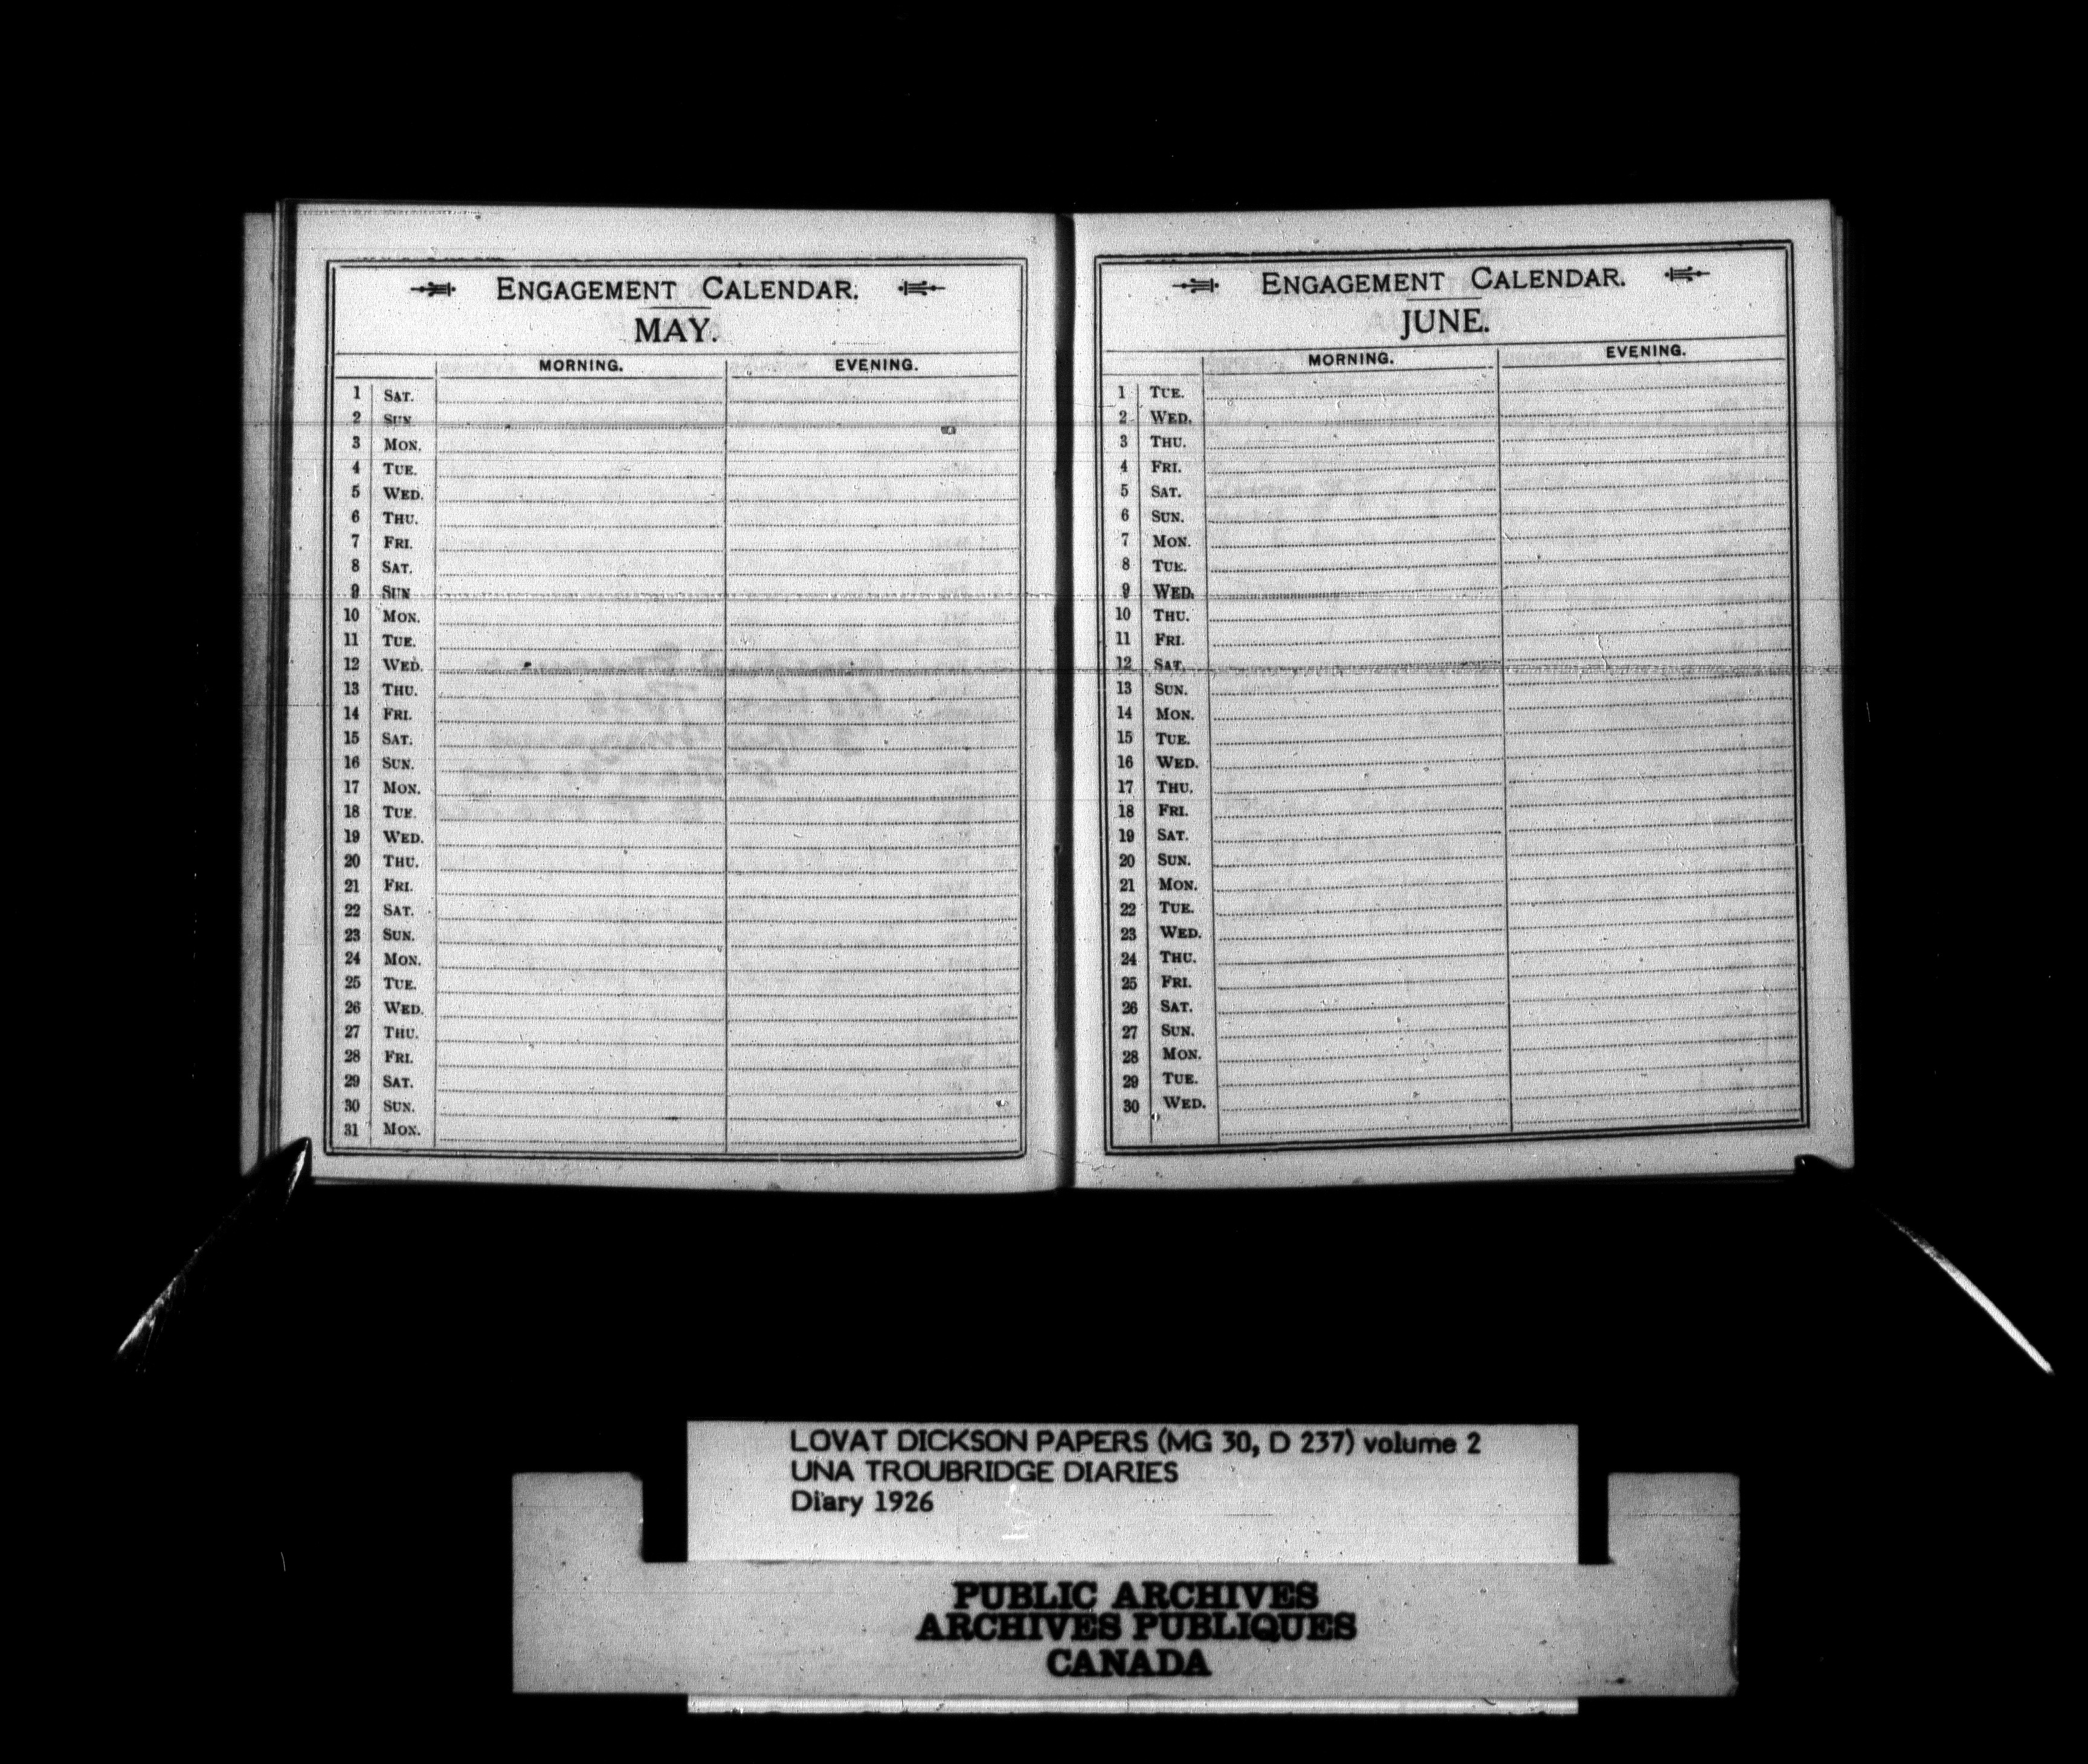 ENGAGEMENT CALENDAR.
MAY.
MORNING. EVENING.
1 SAT.
2 SUN
3 MON.
4 TUE.
5 WED.
6 THU.
7 FRI.
8 SAT.
9 SUN
10 MON.
11 TUE.
12 WED.
13 THU.
14 FRI.
15 SAT.
16 SUN.
17 MON.
18 TUE.
19 WED.
20 THU.
21 FRI.
22 SAT.
23 SUN.
24 MON.
25 TUE.
26 WED.
27 THU.
28 FRI.
29 SAT.
30 SUN.
31 MON.
ENGAGEMENT CALENDAR.
JUNE.
MORNING. EVENING.
1 TUE.
2 WED.
3 THU.
4 FRI.
5 SAT.
6 SUN.
7 MON.
8 TUE.
9 WED.
10 THU.
11 FRI.
12 SAT.
13 SUN.
14 MON.
15 TUE.
16 WED.
17 THU.
18 FRI.
19 SAT.
20 SUN.
21 MON.
22 TUE.
23 WED.
24 THU.
25 FRI.
26 SAT.
27 SUN.
28 MON.
29 TUE.
30 WED.
LOVAT DICKSON PAPERS (MG 30, D 237) volume 2
UNA TROUBRIDGE DIARIES
Diary 1926
PUBLIC ARCHIVES
ARCHIVES PUBLIQUES
CANADA